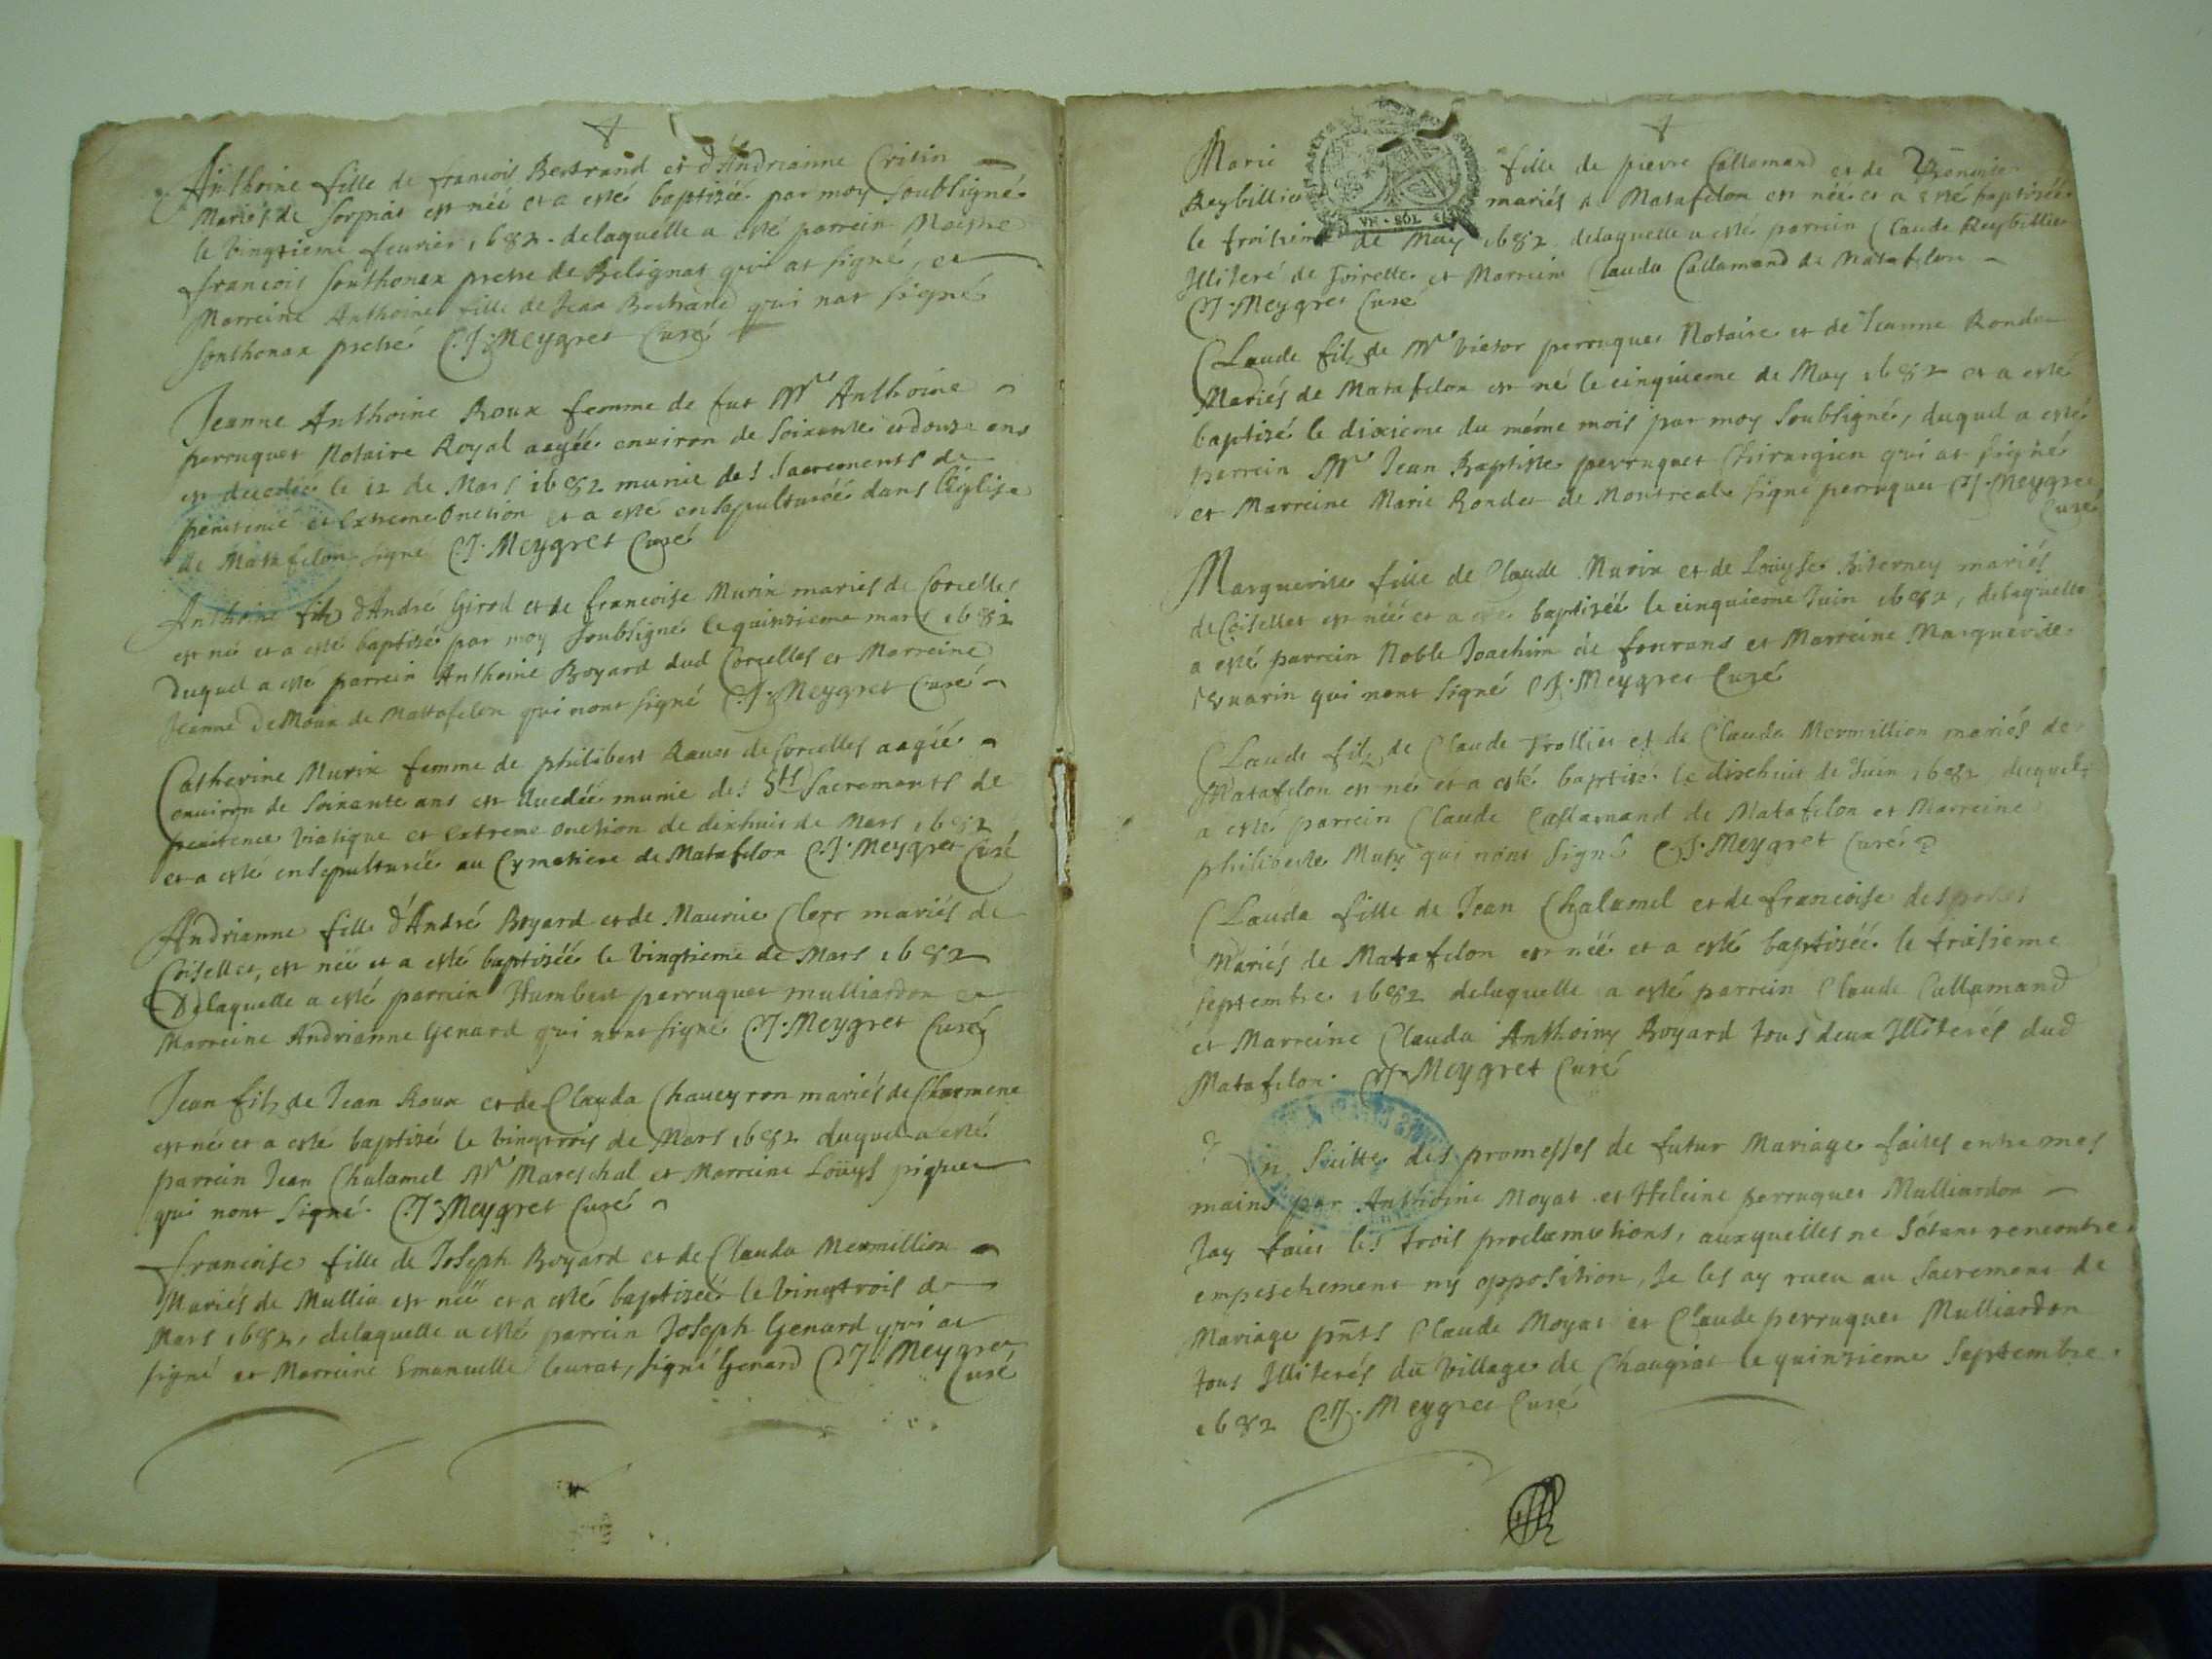 Anthoine fille de francois Bertrand et d'Andrianne Critin
Mariés de Sorpiat est néé et a esté baptizéé par moy soubsigné
le vingtieme feurier 1682. delaquelle a esté parrein
francois Sonthonax prestre de Belignat qui at signé, et
Marreine Anthoine fille de Jean Bertrand qui nat signé
Sonthonax prestre C.J. Meygret Curé
Jeanne Anthoine Roux femme de fut Mre Anthoine
perruquet Notaire Royal aagéé enuiron de soixante et douze ans
est decedée le 12 de Mars 1682 munie des Sacrements de
penitence et Extreme Onction et a esté ensepulturéé dans l'Eglise
de Matafelon signé C.J. Meygret Curé
Anthoine filz d'André Girod et de francoise Murix mariés de Corcelles
est né et a esté baptizé par moy soubsigné le quinzieme mars 1682
duquel a esté parrein Anthoine Boyard dud Corcelles et Marreine
Jeanne de Moux de Mattafelon qui nont signé C.J. Meygret Curé
Catherine Murix femme de philibert Rauet de Corcelles aagéé
enuiron de soixante ans est decedéé munie des Sts Sacrements de
penitence viatique et extreme onction de dixhuit de Mars 1682
et a esté ensepulturéé au Cymetiere de Matafelon C.J. Meygret Curé
Andrianne fille d'André Boyard et de Maurice Clerc mariés de
Coiselles, est néé et a esté baptizéé le vingtieme de Mars 1682
Delaquelle a esté parrein Humbert perruquet mulliardon et
Marreine Andrianne Genard qui nont signé C.J. Meygret Curé
Jean filz de Jean Roux et de Clauda Chaueyron mariés de Charmene
est né et a esté baptizé le vingtrois de Mars 1682 duquel a esté
parrein Jean Chalamel Mre Mareschal et Marreine Loüys piquet
qui nont signé. C.J. Meygret Curé
francoise fille de Joseph Boyard et de Clauda Mermillion
Mariés de Mullia est néé et a esté baptizéé le vingtrois de
Mars 1682, delaquelle a esté parrein Joseph Genard qui at
signé et Marreine Emanuelle leurat, signé Genard C.J. Meygret
Curé
Marie fille de pierre Callamand et de
Reybillie mariés de Matafelon est néé et a esté baptizéé
le troisieme de May 1682 delaquelle a esté parrein Claude Reybillie
Illiteré de Toirette et Marreine Clauda Callamand de Matafelon
C.J. Meygret Curé
Claude filz de Mre Victor perruquet Notaire et de Jeanne Rondet
Mariés de Matafelon est né le cinquieme de May 1682 et a esté
baptizé le dixieme du méme mois par moy soubsigné, duquel a esté
perrein Mre Jean Baptiste perruquet Chirurgien qui at signé
et Marreine Marie Rondet de Montreal signé perruquet C.J. Meygret
Curé
Marguerite fille de Claude Murix et de Louyse mariés
de Coiselles est néé et a esté baptizéé le cinquieme Juin 1682, delaquelle
a esté parrein Noble Joachim de fourans et Marreine Marguerite
qui nont signé C.J. Meygret Curé
Claude filz de Claude Trollier et de Clauda Mermillion mariés de
Matafelon est né et a esté baptizé le dixehuit de Juin 1682 duquel
a esté parrein Claude Callamand de Matafelon et Marreine
philiberte qui nont signé C.J. Meygret Curé
Clauda fille de Jean Chalamel et de francoise
Mariés de Matafelon est néé et a esté baptizéé le troisieme
septembre 1682 delaquelle a esté parrein Claude Callamand
et Marreine Clauda Anthoiny Boyard tous deux Illiterés dud
Matafelon. C.J. Meygret Curé
En Suitte des promesses de futur Mariage faites entre mes
mains par Anthoine Moyat et Heleine perruquet Mulliardon
Jay faict les trois proclamations, auxquelles ne s'étant rencontré
empeschement ny opposition, Je les ay receu au Sacrement de
Mariage pnts Claude Moyat et Claude perruquet Mulliardon
tous Illiterés du village de Chaugiat le quinzieme Septembre
1682 C.J. Meygret Curé